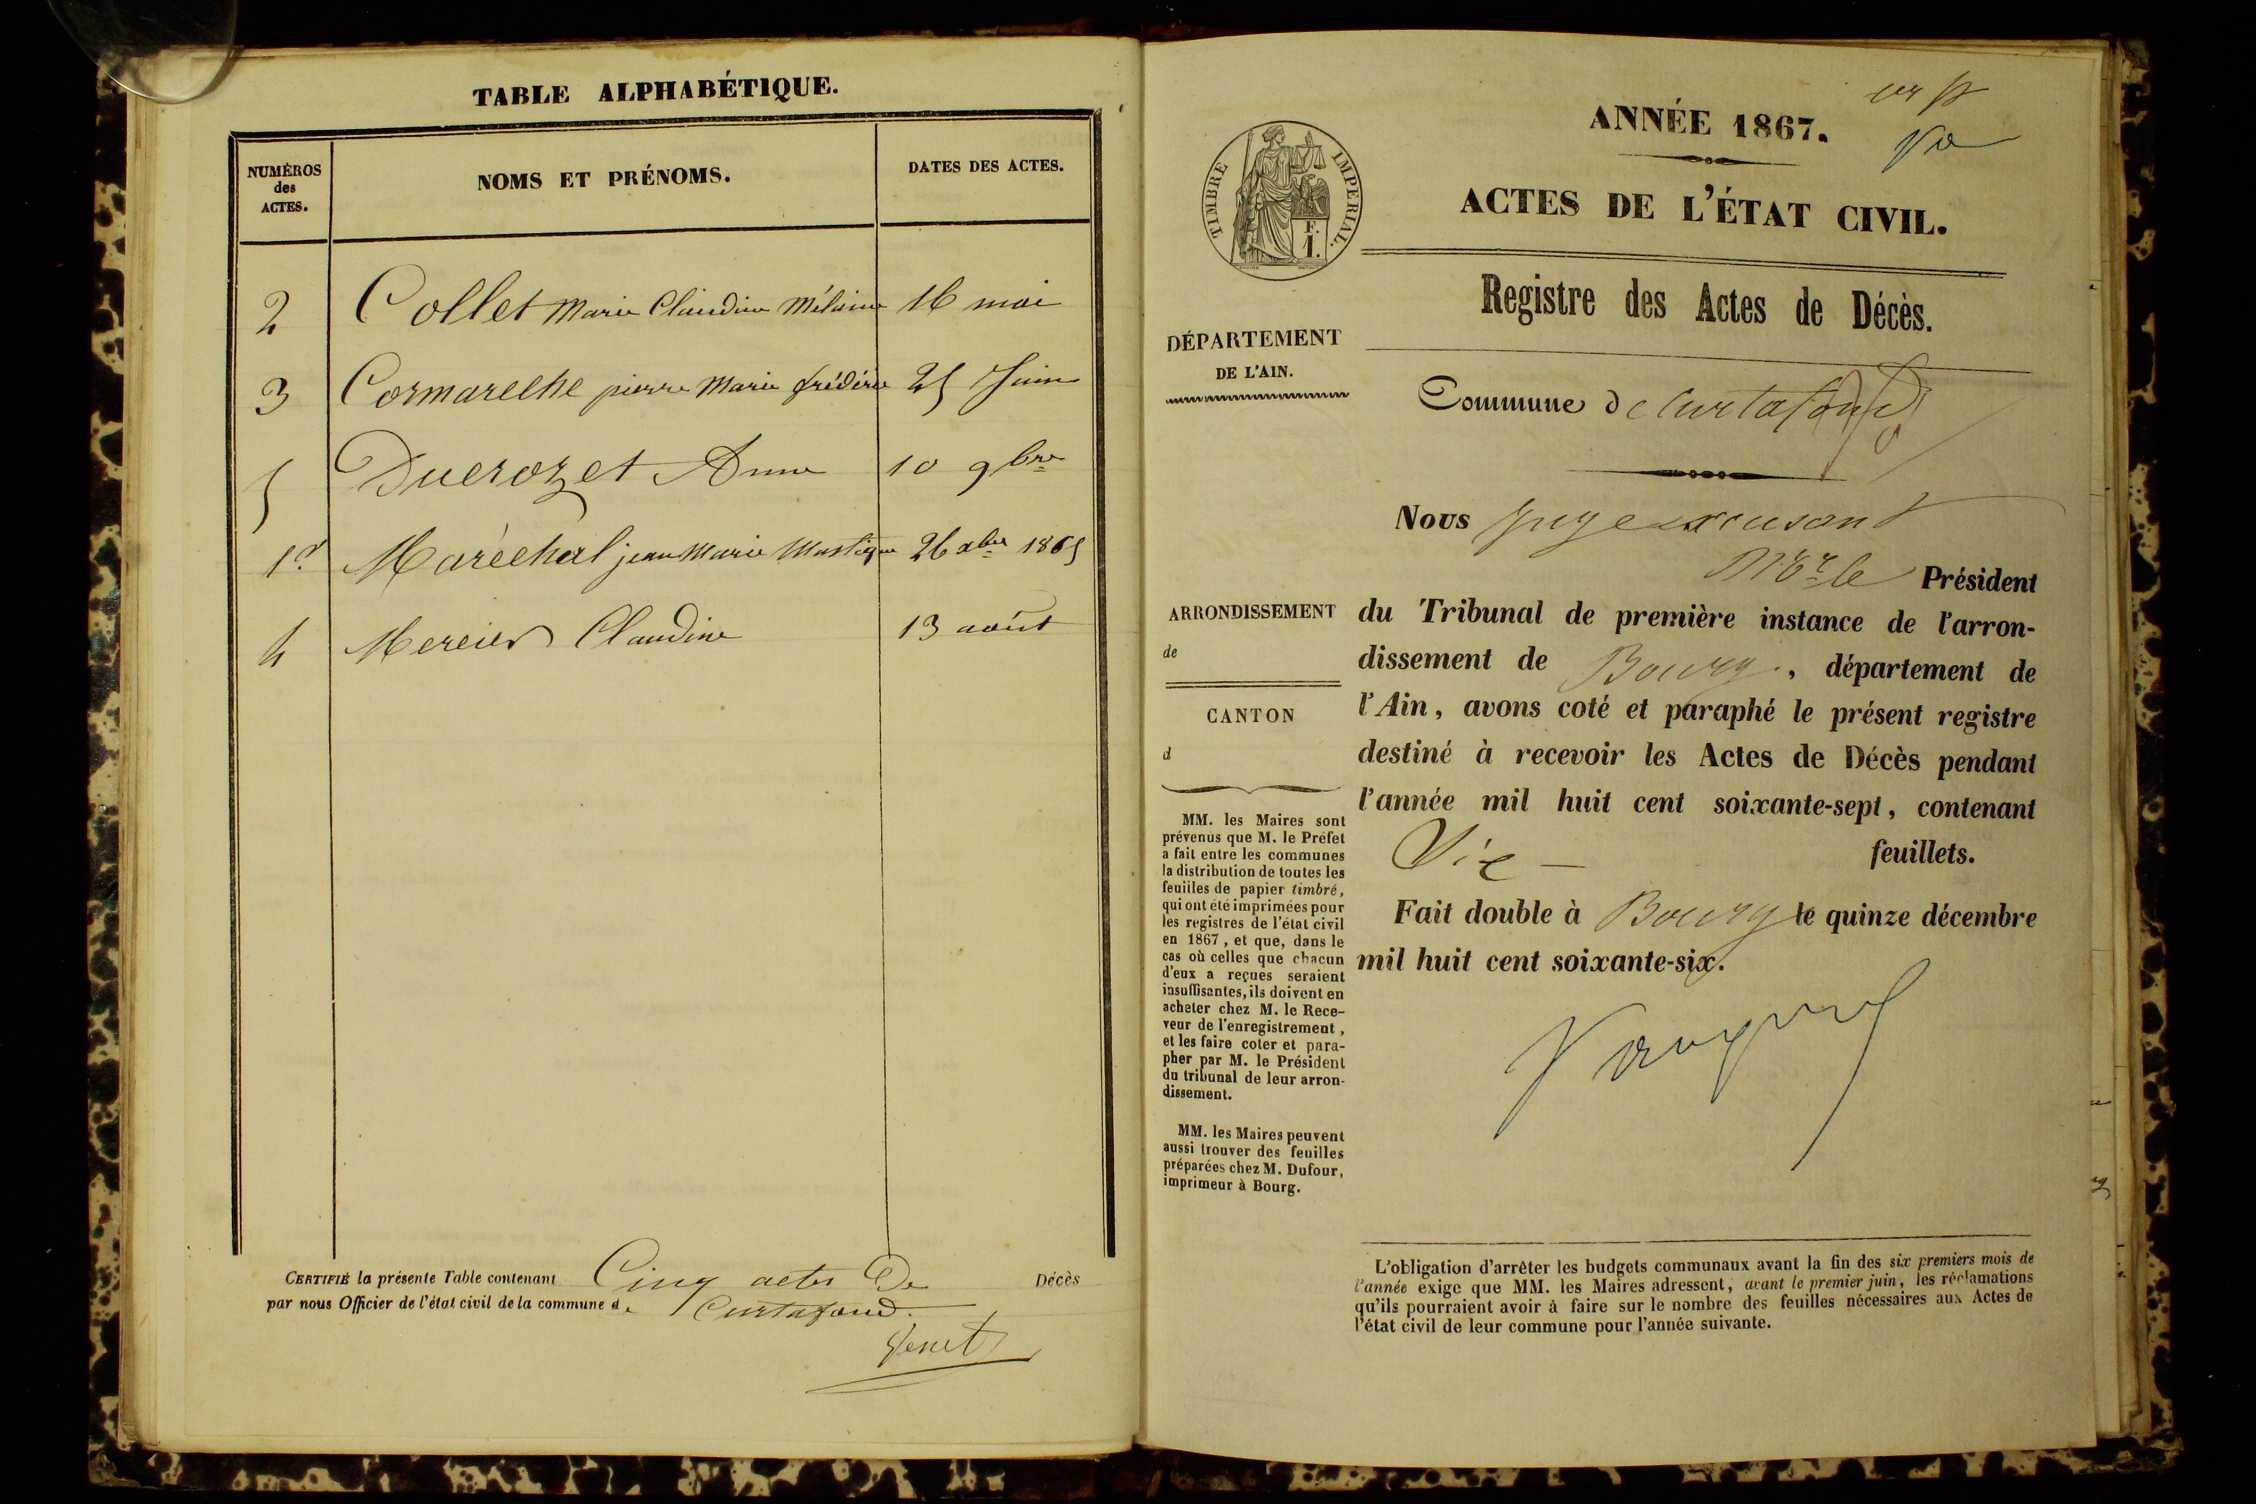 TABLE ALPHABÉTIQUE.
NUMÉROS
des
ACTES.
NOMS ET PRÉNOMS.
DATES DES ACTES.
2 Collet Marie Claudine Mélanie 16 mai
3 Cormareche pierre Marie frédéric 25 Juin
5 Ducrozet Anne 10 9bre
1er Maréchal jean Marie 26 xbre 1865
4 Mercier Claudine 13 août
CERTIFIÉ la présente Table contenant Cinq actes De Décès
par nous Officier de l'état civil de la commune de Curtafond.
ANNÉE 1867.
TIMBRE IMPERIAL.
F.
1.
ACTES DE L'ÉTAT CIVIL.
Registre des Actes de Décès.
DÉPARTEMENT
DE L'AIN.
Commune de Curtafond
Nous Juge
Mr le Président
ARRONDISSEMENT
de
CANTON
d
du Tribunal de première instance de l'arron-
dissement de Bourg, département de
l'Ain, avons coté et paraphé le présent registre
destiné à recevoir les Actes de Décès pendant
l'année mil huit cent soixante-sept, contenant
Six feuillets.
Fait double à Bourg le quinze décembre
mil huit cent soixante-six.
MM. les Maires sont
prévenus que M. le Préfet
a fait entre les communes
la distribution de toutes les
feuilles de papier timbré,
qui ont été imprimées pour
les registres de l'état civil
en 1867, et que, dans le
cas où celles que chacun
d'eux a reçues seraient
insuffisantes, ils doivent en
acheter chez M. le Rece-
veur de l'enregistrement,
et les faire coter et para-
pher par M. le Président
du tribunal de leur arron-
dissement.
MM. les Maires peuvent
aussi trouver des feuilles
préparées chez M. Dufour,
imprimeur à Bourg.
L'obligation d'arrêter les budgets communaux avant la fin des six premiers mois de
l'année exige que MM. les Maires adressent, avant le premier juin, les réclamations
qu'ils pourraient avoir à faire sur le nombre des feuilles nécessaires aux Actes de
l'état civil de leur commune pour l'année suivante.